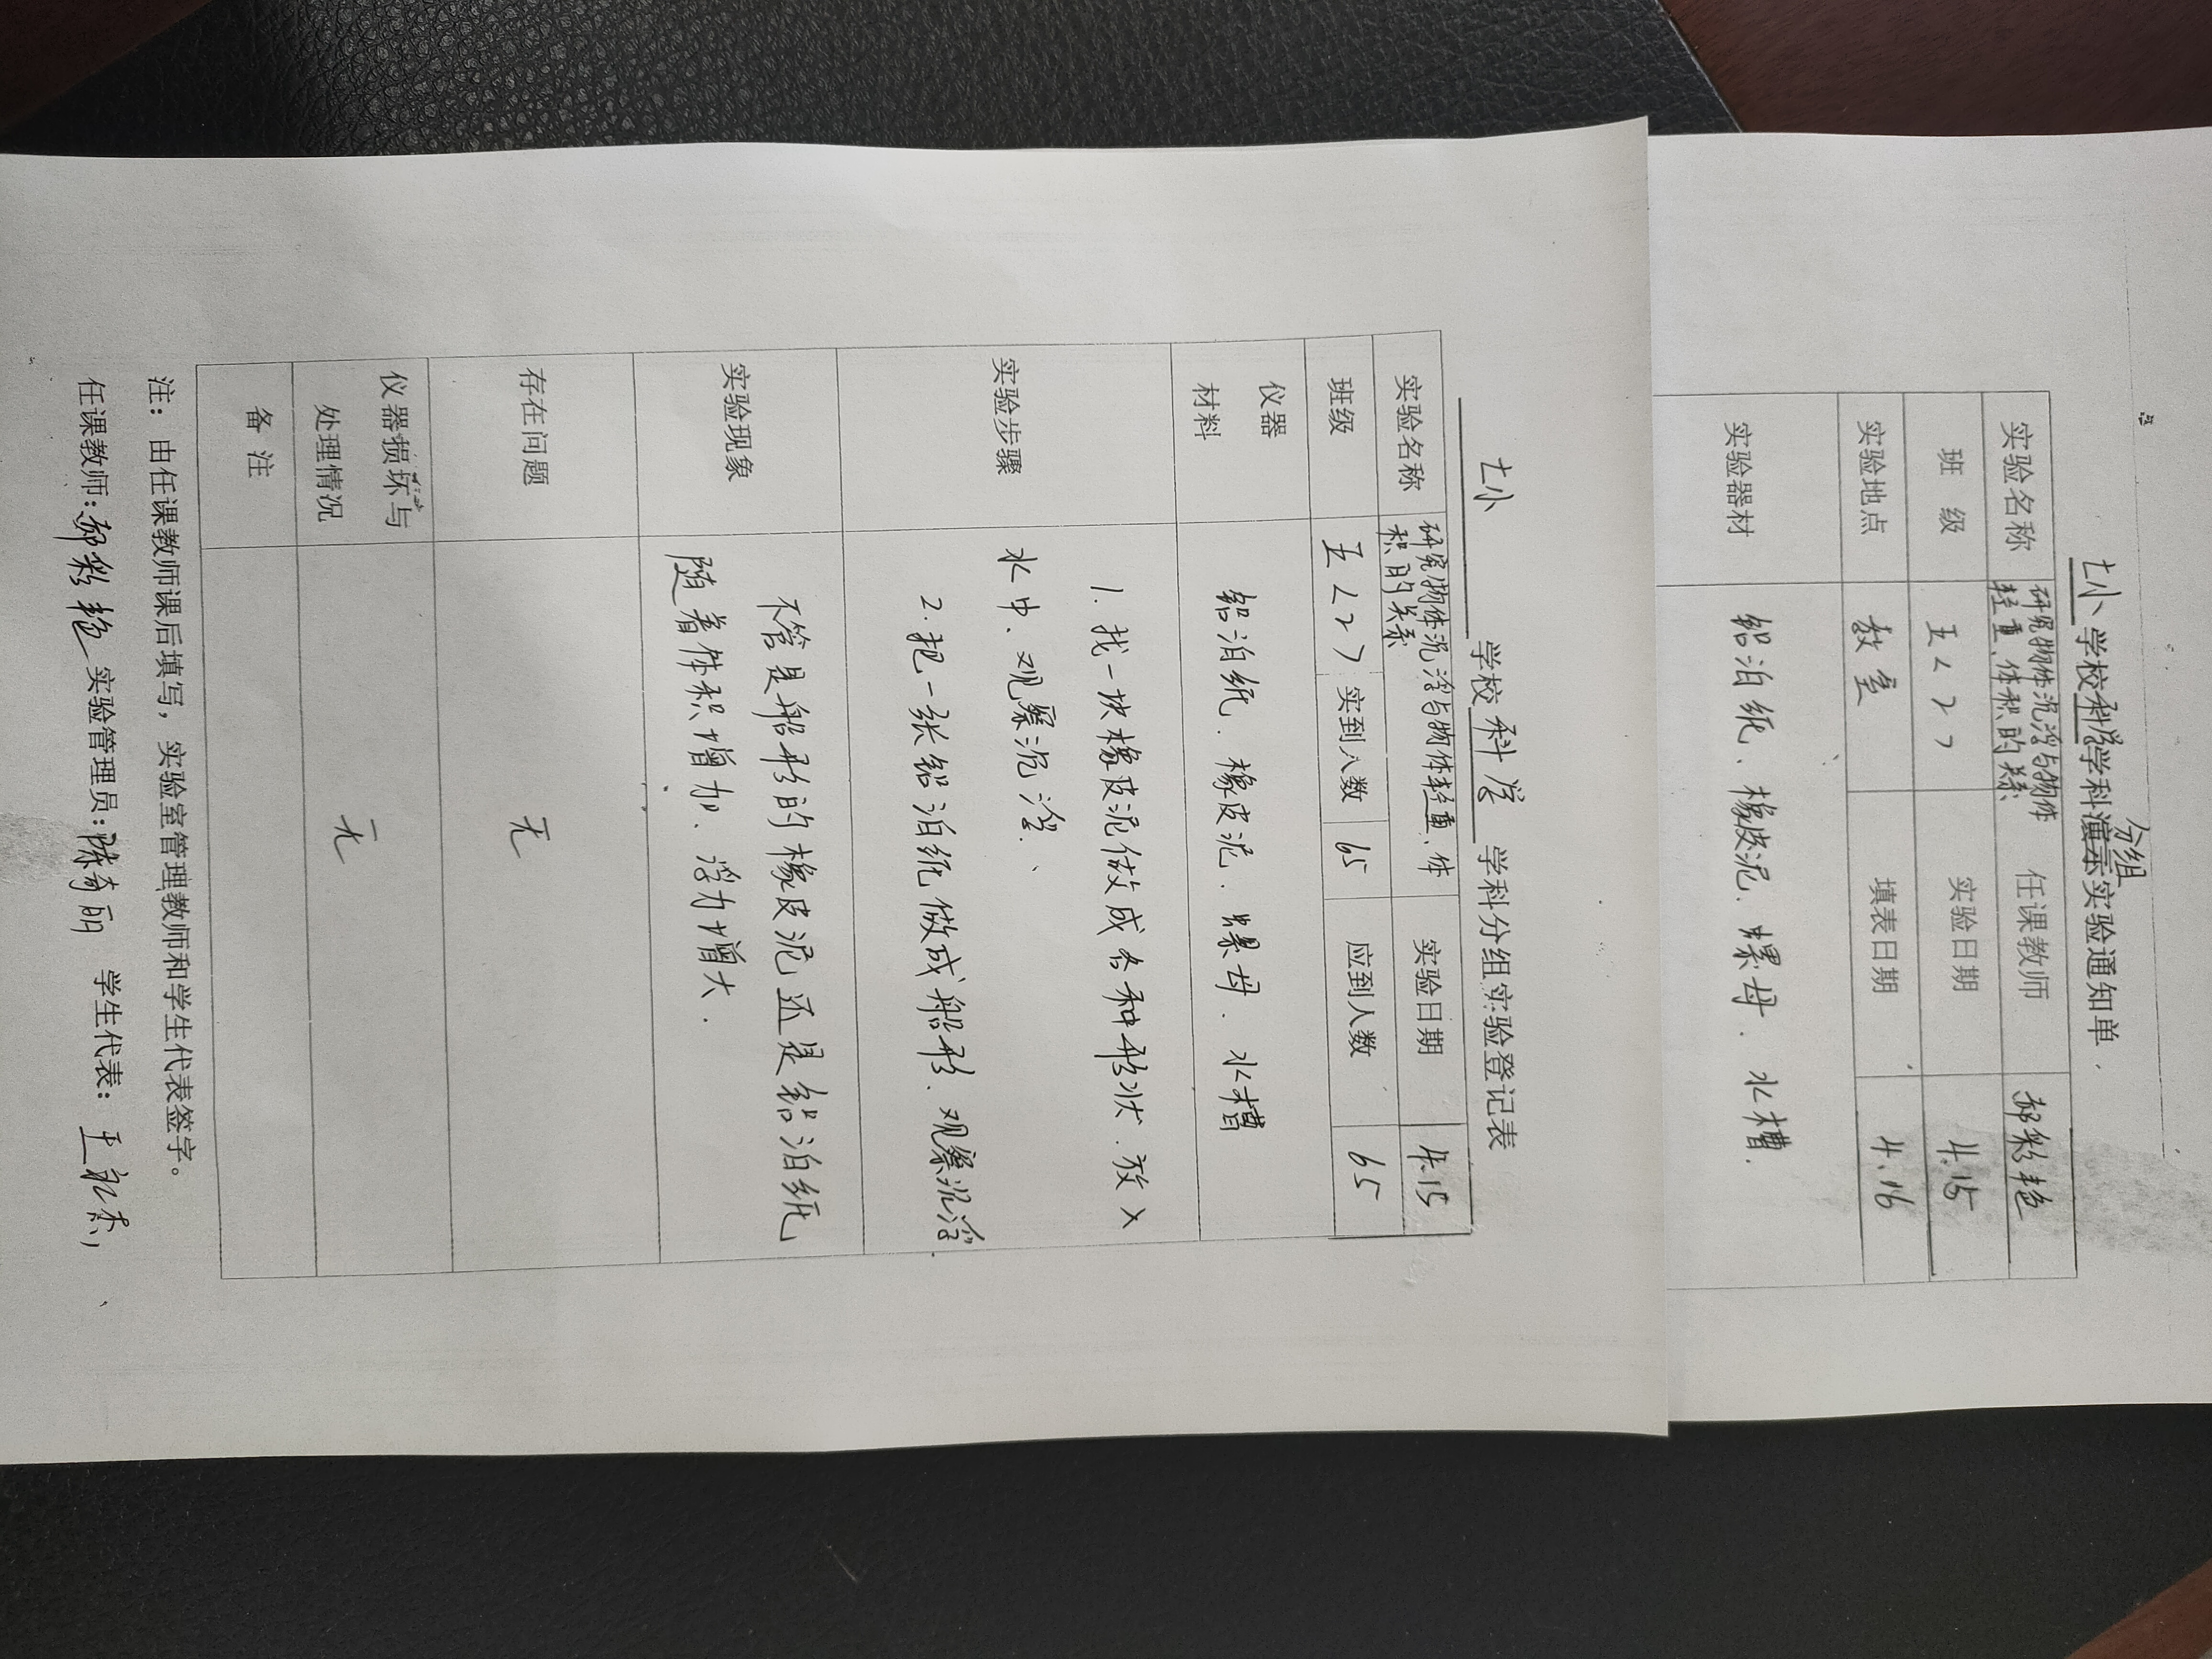 七小 学校 科学 学科分组实验登记表
实验名称 研究物体沉浮与物体轻重、体积的关系 实验日期 4.15
班级 五<2> 实到人数 65 应到人数 65
仪器材料 铝泊纸、橡皮泥、螺母、水槽
实验步骤
1.找一块橡皮泥做成各种形状.放入
水中、观察沉浮、
2.把一张铝泊纸做成船形、观察沉浮
实验现象
不管是船形的橡皮泥还是铝泊纸
随着体积增加、浮力增大.
存在问题 无
仪器损坏与处理情况 无
备 注
注:由任课教师课后填写,实验室管理教师和学生代表签字。
任课教师:郝彩艳 实验管理员:陈奇丽 学生代表:
分组
七小 学校科学学科演示实验通知单
实验名称 研究物体沉浮与物体轻重、体积的关系 任课教师 郝彩艳
班 级 五<2> 实验日期 4.15
实验地点 教室 填表日期 4.16
实验器材 铝泊纸、橡皮泥、螺母、水槽.